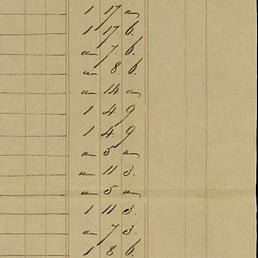 1 17 "
1 17 6.
" 7 6.
" 8 6.
" 14 "
1 4 9
1 4 9
" 5 "
" 11 3.
" 5 "
1 11 3.
" 7 3.
1 8 6.